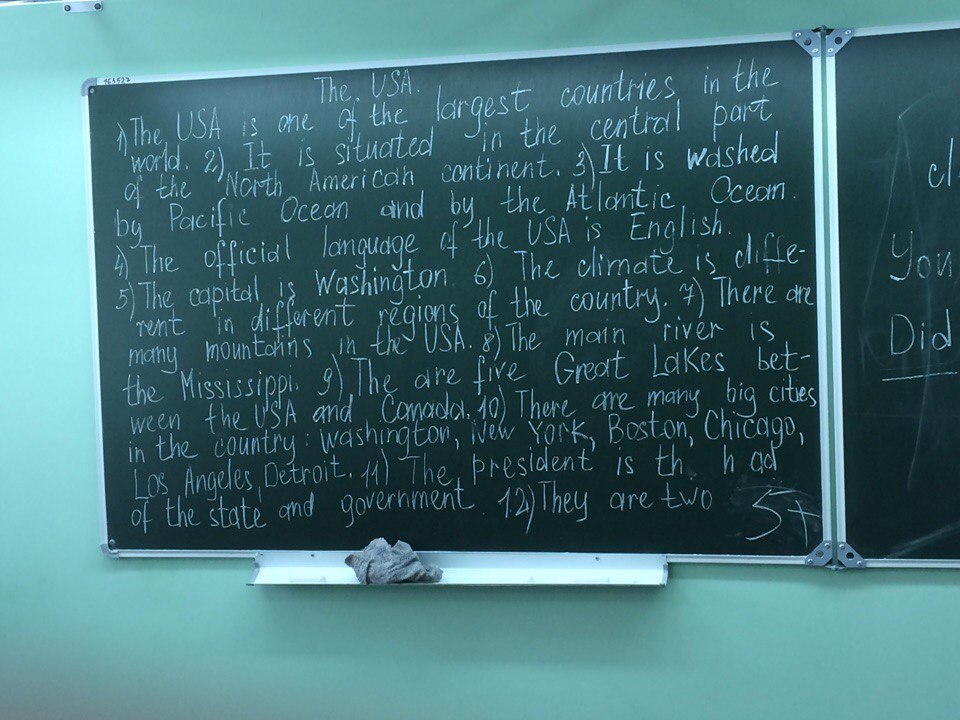 The USA.
1) The USA is one of the largest countries in the
world. 2) It is situated in the central part
of the North American continent. 3) It is washed
by Pacific Ocean and by the Atlantic Ocean.
4) The official language of the USA is English.
5) The capital is Washington. 6) The climate is diffe-
rent in different regions of the country. 7) There are
many mountains in the USA. 8) The main river is
the Mississippi. 9) The are five Great Lakes bet-
ween the USA and Canada. 10) There are many big cities
in the country: Washington, New York, Boston, Chicago,
Los Angeles, Detroit. 11) The president is th h ad
of the state and government. 12) They are two
5+
You
Did